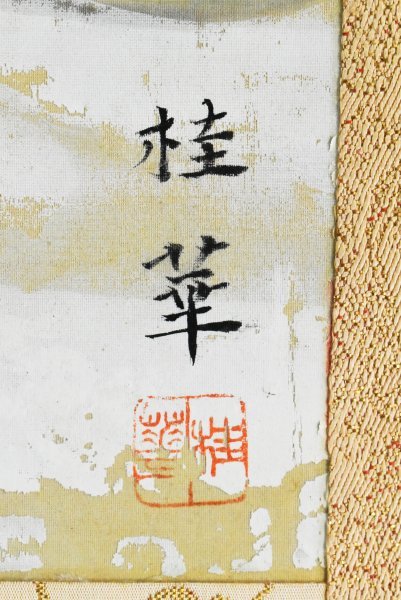 桂華
桂華